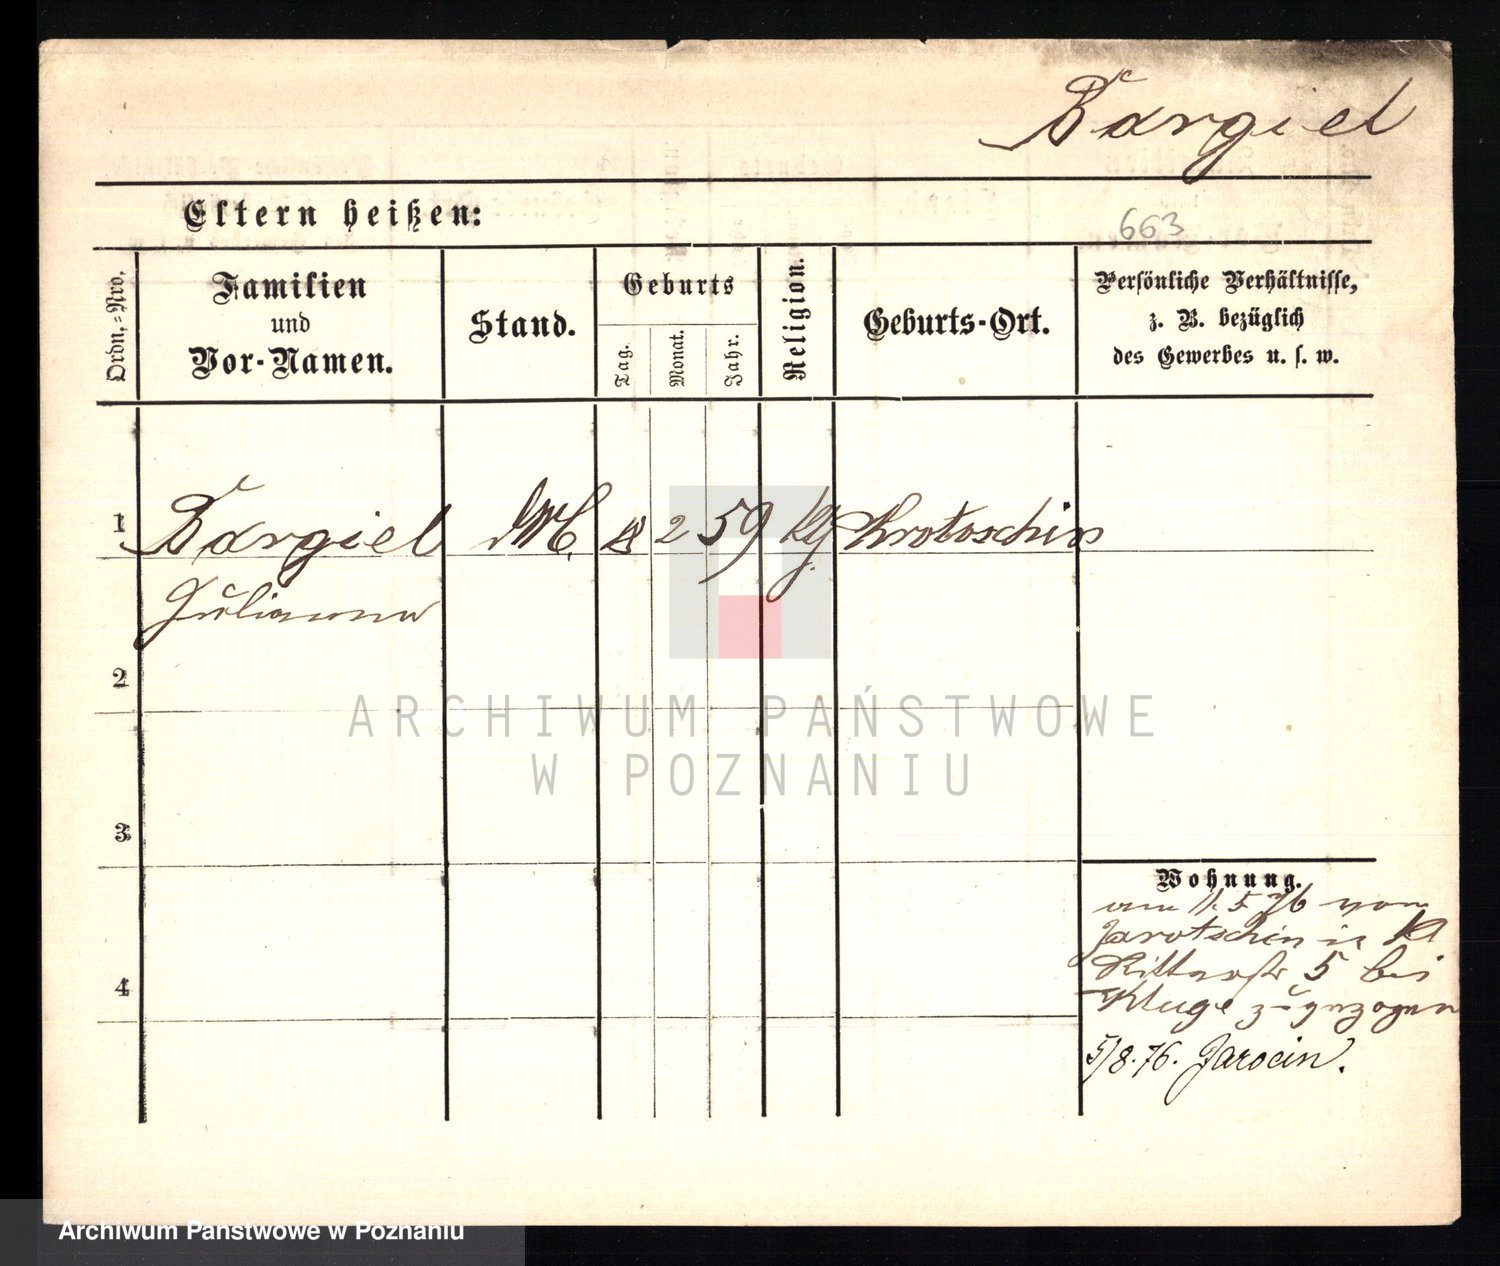 Bargiel
Eltern heißen:
663
Ordn.=Nro.
Familien
und
Vor-Namen.
Stand.
Geburts
Tag.
Monat.
Jahr.
Religion.
Geburts-Ort.
Persönliche Verhältnisse,
z. B. bezüglich
des Gewerbes u. s. w.
1 Bargiel 2 59 Krotoschin
Julianna
2
3
4
Wohnung.
am 11. 5 76 von
Jarotschin in Kl
Ritterstr 5 bei
Kluge zugezogen
5/8.76. Jarocin.
ARCHIWUM PAŃSTWOWE
W POZNANIU
Archiwum Państwowe w Poznaniu